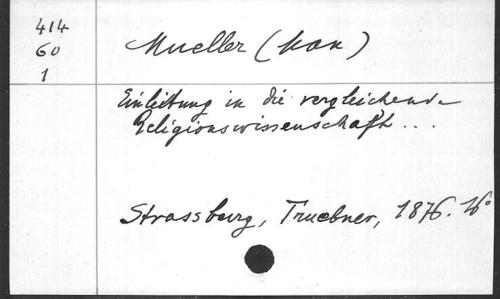 414
60
1
Mueller (Max)
Einleitung in die vergleichende
Religionswissenschaft ...
Strassburg, Truebner, 1876. 16°